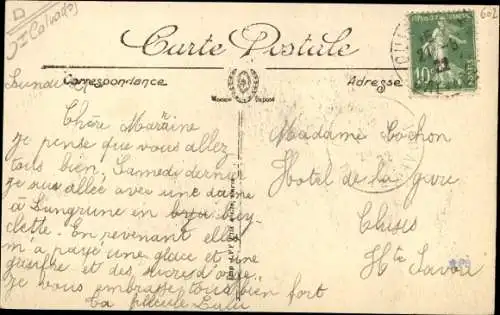 D
Dt Calvados
602
Carte Postale
Correspondance
Adresse
Marque Déposé
10c
Lundi
Chère Marraine
Je pense que vous allez
tous bien. Samedi dernier
je suis allée avec une dame
à Langrune en bicy-
clette. En revenant elle
m'a payé une glace et une
gaufre et des sucres d'orge.
Je vous embrasse tous bien fort
Ta filleule Lulu
Madame Cochon
Hotel de la gare
Cluses
Hte Savoie